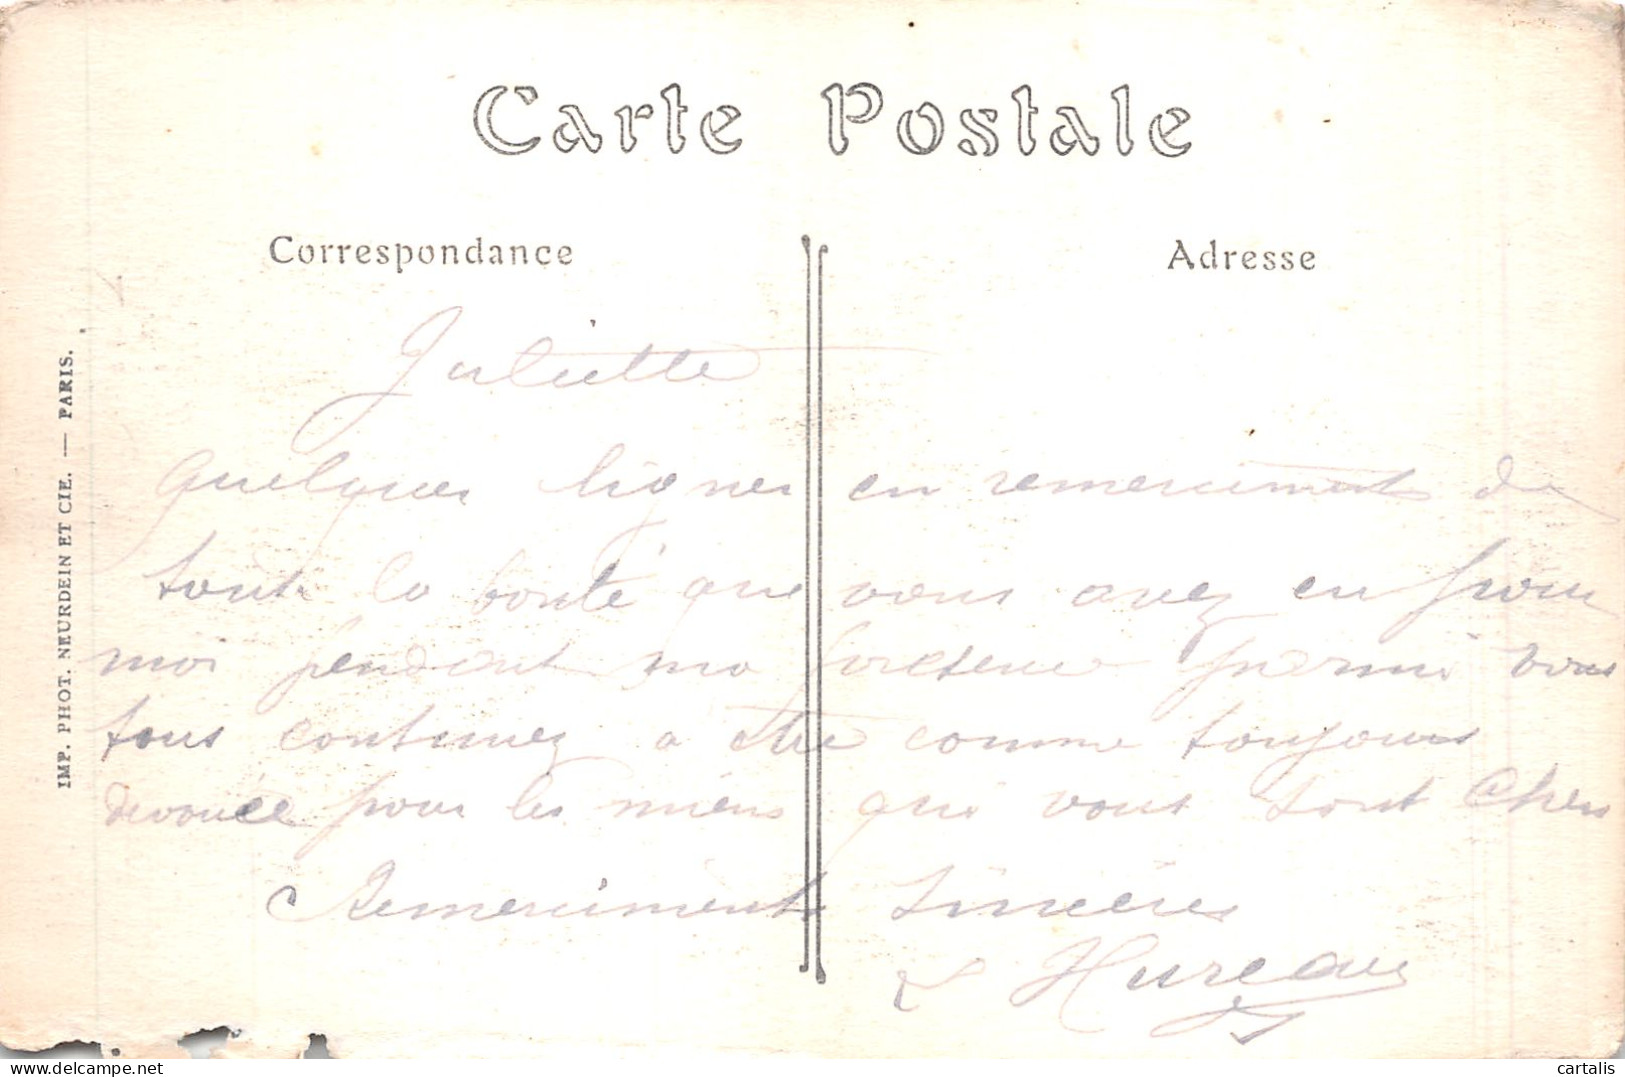 Carte Postale
Correspondance
Adresse
IMP. PHOT. NEURDEIN ET CIE. — PARIS.
Juliette
quelques lignes en remerciments de
toute la bonté que vous avez eu pour
moi pendant ma parmi vous
tous continuez a être comme toujours
devouée pour les miens qui vous sont chers
Remerciments sincères
Hureau
cartalis